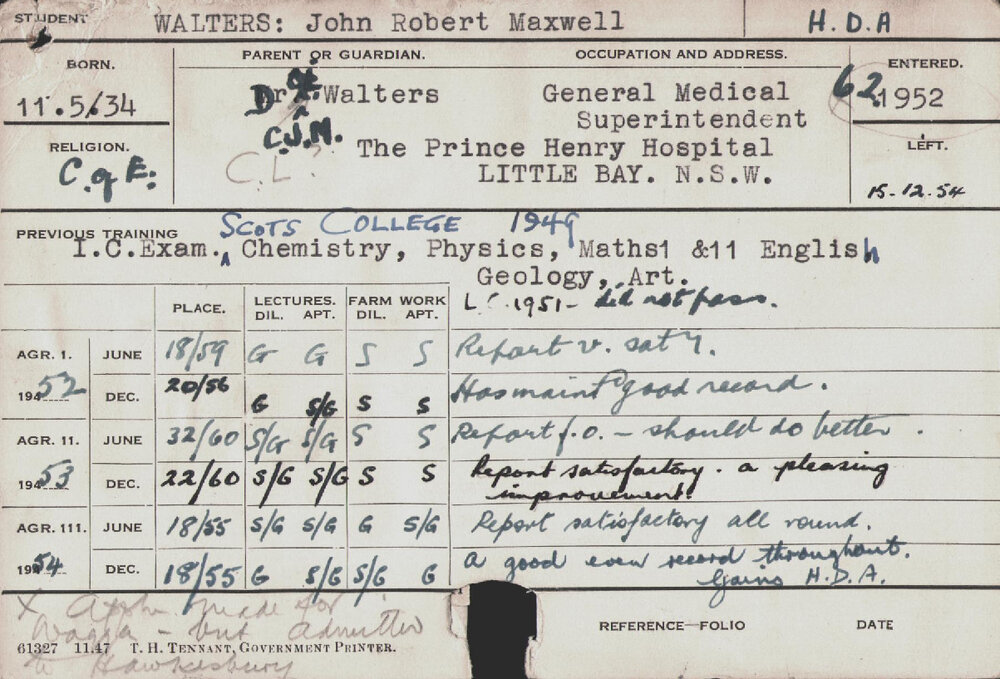 STUDENT WALTERS: John Robert Maxwell H.D.A
BORN. PARENT OR GUARDIAN. OCCUPATION AND ADDRESS. ENTERED.
11.5/34 Dr Walters General Medical 62 1952
C.J.M. Superintendent
RELIGION. C.L? The Prince Henry Hospital LEFT.
C. of E. LITTLE BAY. N.S.W. 15.12.54
SCOTS COLLEGE 1949
PREVIOUS TRAINING
I.C.Exam. Chemistry, Physics, Maths1 &11 English
Geology, Art.
L.C. 1951 - did not pass.
PLACE. LECTURES. FARM WORK
DIL. APT. DIL. APT.
AGR. 1. JUNE 18/59 G G S S Report v. saty.
1952 DEC. 20/56 G S/G S S Has maint good record.
AGR. 11. JUNE 32/60 S/G S/G S S Report f.o. - should do better.
1953 DEC. 22/60 S/G S/G S S Report satisfactory. a pleasing
improvement.
AGR. 111. JUNE 18/55 S/G S/G G S/G Report satisfactory all round.
1954 DEC. 18/55 G S/G S/G G A good even record throughout.
Gains H.D.A.
X Appn made for
Wagga - but admitted
to Hawkesbury
REFERENCE—FOLIO DATE
61327 11.47 T. H. TENNANT, GOVERNMENT PRINTER.